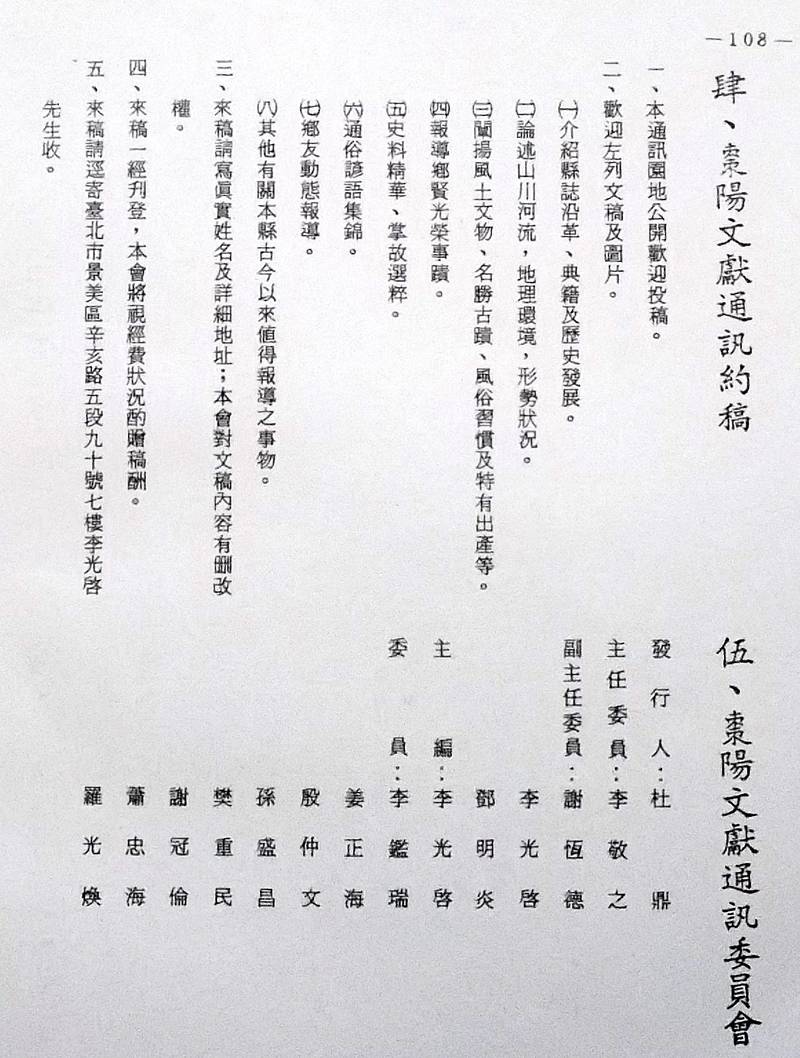 —108—
肆、棗陽文獻通訊約稿
一、本通訊園地公開歡迎投稿。
二、歡迎左列文稿及圖片。
㈠介紹縣誌沿革、典籍及歷史發展。
㈡論述山川河流，地理環境，形勢狀況。
㈢闡揚風土文物、名勝古蹟、風俗習慣及特有出產等。
㈣報導鄉賢光榮事蹟。
㈤史料精華、掌故選粹。
㈥通俗諺語集錦。
㈦鄉友動態報導。
㈧其他有關本縣古今以來値得報導之事物。
三、來稿請寫眞實姓名及詳細地址；本會對文稿內容有刪改
權。
四、來稿一經刋登，本會將視經費狀況酌贈稿酬。
五、來稿請逕寄臺北市景美區辛亥路五段九十號七樓李光啓
先生收。
伍、棗陽文獻通訊委員會
發行人：杜鼎
主任委員：李敬之
副主任委員：謝恆德
李光啓
鄧明炎
主編：李光啓
委員：李鑑瑞
姜正海
殷仲文
孫盛昌
樊重民
謝冠倫
蕭忠海
羅光煥